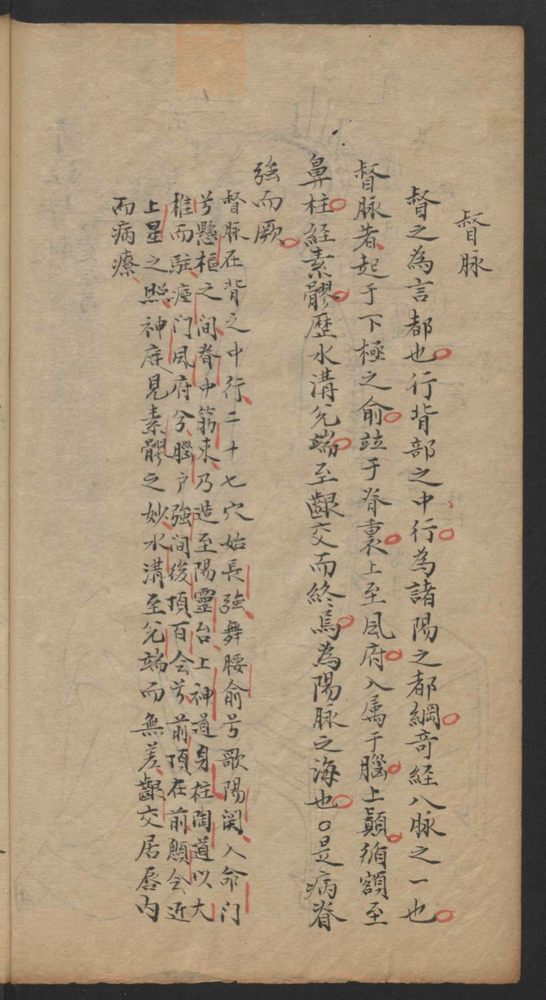 督脉
督之為言都也行背部之中行為諸陽之都綱奇經八脉之一也
督脉者起于下極之俞竝于脊裏上至風府入属于腦上顛循額至
鼻柱經素髎歷水溝兌端至齦交而終焉為陽脉之海也○是病脊
強而厥
督脉在背之中行二十七穴始長強舞腰俞兮歌陽関入命门
兮懸樞之间脊中筋束乃造至陽靈台上神道身柱陶道以大
椎而駐瘂门风府兮腦户強间後頂百会兮前頂在前顖会近
上星之照神庭見素髎之妙水溝至兌端而無差齦交居唇内
而病療